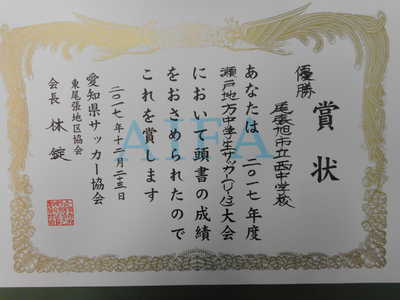 賞状
優勝
尾張旭市立西中学校
あなたは二〇一七年度
瀬戸地方中学生サッカーU-13大会
において頭書の成績
をおさめられたので
これを賞します
二〇一七年十二月二十三日
愛知県サッカー協会
東尾張地区協会
会長 林 錠
AIFA